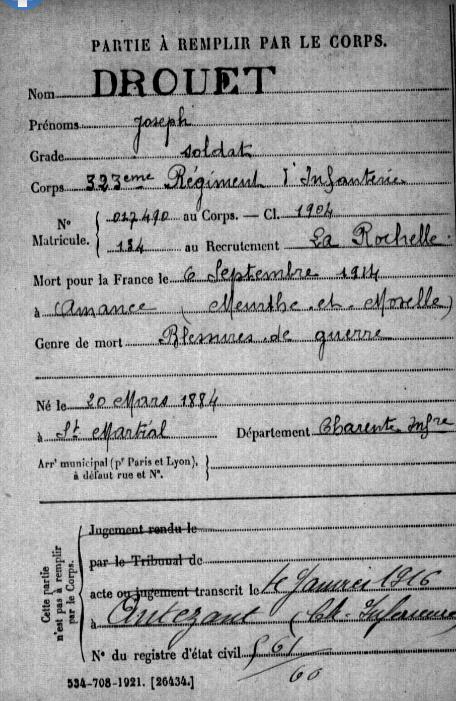 PARTIE À REMPLIR PAR LE CORPS.
Nom DROUET
Prénoms Joseph
Grade soldat
Corps 323eme Régiment d'Infanterie
N° Matricule. { 017490 au Corps. — Cl. 1904
184 au Recrutement La Rochelle
Mort pour la France le 6 Septembre 1914
à Amance (Meurthe et Moselle)
Genre de mort Blessures de guerre
Né le 20 Mars 1884
à St Martial Département Charente Infre
Arrt municipal (pr Paris et Lyon), }
à défaut rue et N°.
Cette partie n'est pas à remplir par le Corps.
Jugement rendu le
par le Tribunal de
acte ou jugement transcrit le Janvier 1916
à Antezant (Ch. Inférieure)
N° du registre d'état civil 61/60
534-708-1921. [26434.]